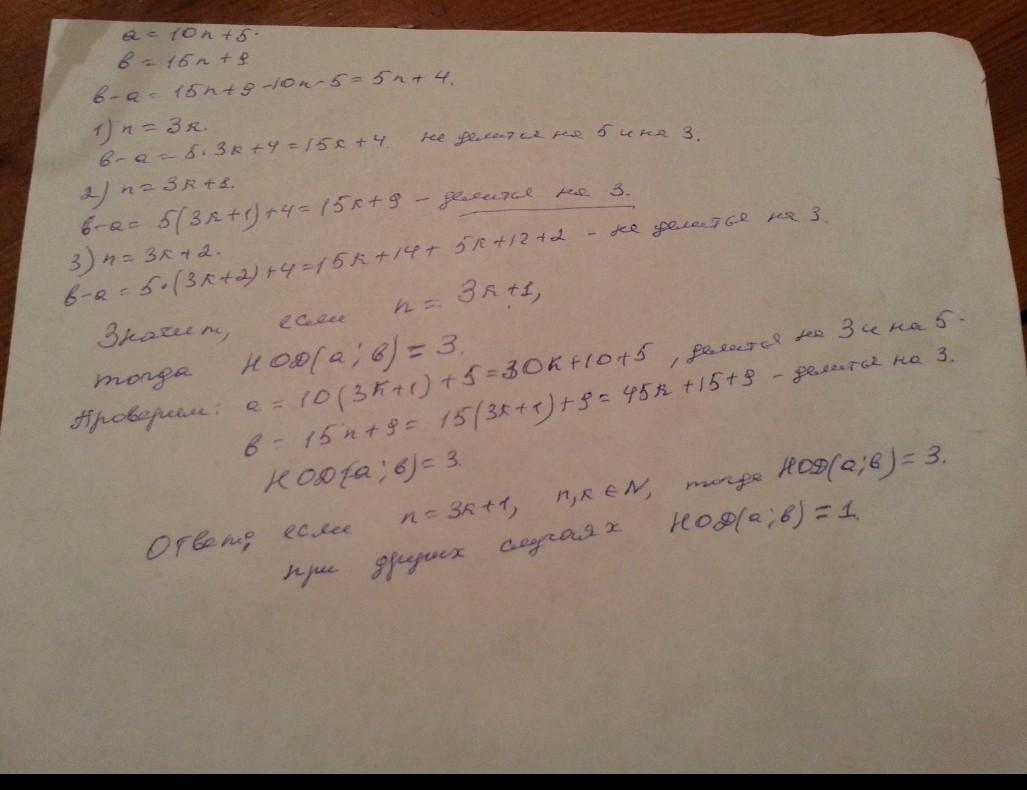 a = 10n+5.
в = 15n+9
в-a = 15n+9-10n-5 = 5n+4.
1) n = 3к.
в-a = 5·3к+4 = 15к+4 не делится на 5 и на 3.
2) n = 3к+1.
в-a = 5(3к+1)+4 = 15к+9 - делится на 3.
3) n = 3к+2.
в-a = 5·(3к+2)+4 = 15к+14+ 5к+12+2 - не делится на 3.
Значит, если n = 3к+1,
тогда НОД(a; в) = 3.
Проверим: a = 10(3к+1)+5 = 30к+10+5 , делится на 3 и на 5.
в = 15n+9 = 15(3к+1)+9 = 45к+15+9 - делится на 3.
НОД(a; в) = 3.
Ответ: если n = 3к+1, n,к ∈ N, тогда НОД(a; в) = 3.
при других случаях НОД(a; в) = 1.